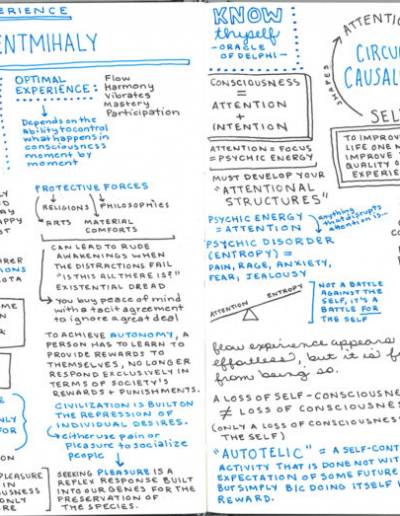 ERIENCE
ENTMIHALY
OPTIMAL
EXPERIENCE:
Flow
Harmony
Vibrates
Mastery
Participation
Depends on the
Ability to control
what happens in
consciousness
moment by
moment
PROTECTIVE FORCES
RELIGIONS
PHILOSOPHIES
ARTS
MATERIAL
COMFORTS
CAN LEAD TO RUDE
AWAKENINGS WHEN
THE DISTRACTIONS FAIL
"IS THIS ALL THERE IS?"
EXISTENTIAL DREAD
You buy peace of mind
with a tacit agreement
to ignore a great deal
TO ACHIEVE AUTONOMY, A
PERSON HAS TO LEARN TO
PROVIDE REWARDS TO
THEMSELVES, NO LONGER
RESPOND EXCLUSIVELY IN
TERMS OF SOCIETY'S
REWARDS + PUNISHMENTS.
CIVILIZATION IS BUILT ON
THE REPRESSION OF
INDIVIDUAL DESIRES.
either use pain or
pleasure to socialize
people
SEEKING PLEASURE IS A
REFLEX RESPONSE BUILT
INTO OUR GENES FOR THE
PRESERVATION OF
THE SPECIES.
KNOW
thyself
- ORACLE
OF
DELPHI -
CONSCIOUSNESS
=
ATTENTION
+
INTENTION
ATTENTION = FOCUS
= PSYCHIC ENERGY
MUST DEVELOP YOUR
"ATTENTIONAL
STRUCTURES"
PSYCHIC ENERGY
= ATTENTION
anything
that disrupts
attention is...
PSYCHIC DISORDER
(ENTROPY) =
PAIN, RAGE, ANXIETY,
FEAR, JEALOUSY
ATTENTION
ENTROPY
NOT A BATTLE
AGAINST THE
SELF, IT'S A
BATTLE FOR
THE SELF
flow experience appears
effortless, but it is f
from being so.
A LOSS OF SELF-CONSCIOUSN
≠ LOSS OF CONSCIOUSNE
(ONLY A LOSS OF CONSCIOUSN
THE SELF)
"AUTOTELIC" = A SELF-CONT
ACTIVITY THAT IS DONE NOT WIT
EXPECTATION OF SOME FUTURE
BUT SIMPLY B/C DOING ITSELF I
REWARD.
ATTENTIO
SHAPES
CIRCUL
CAUSAL
SEL
TO IMPROV
LIFE ONE M
IMPROVE T
QUALITY O
EXPERIEN